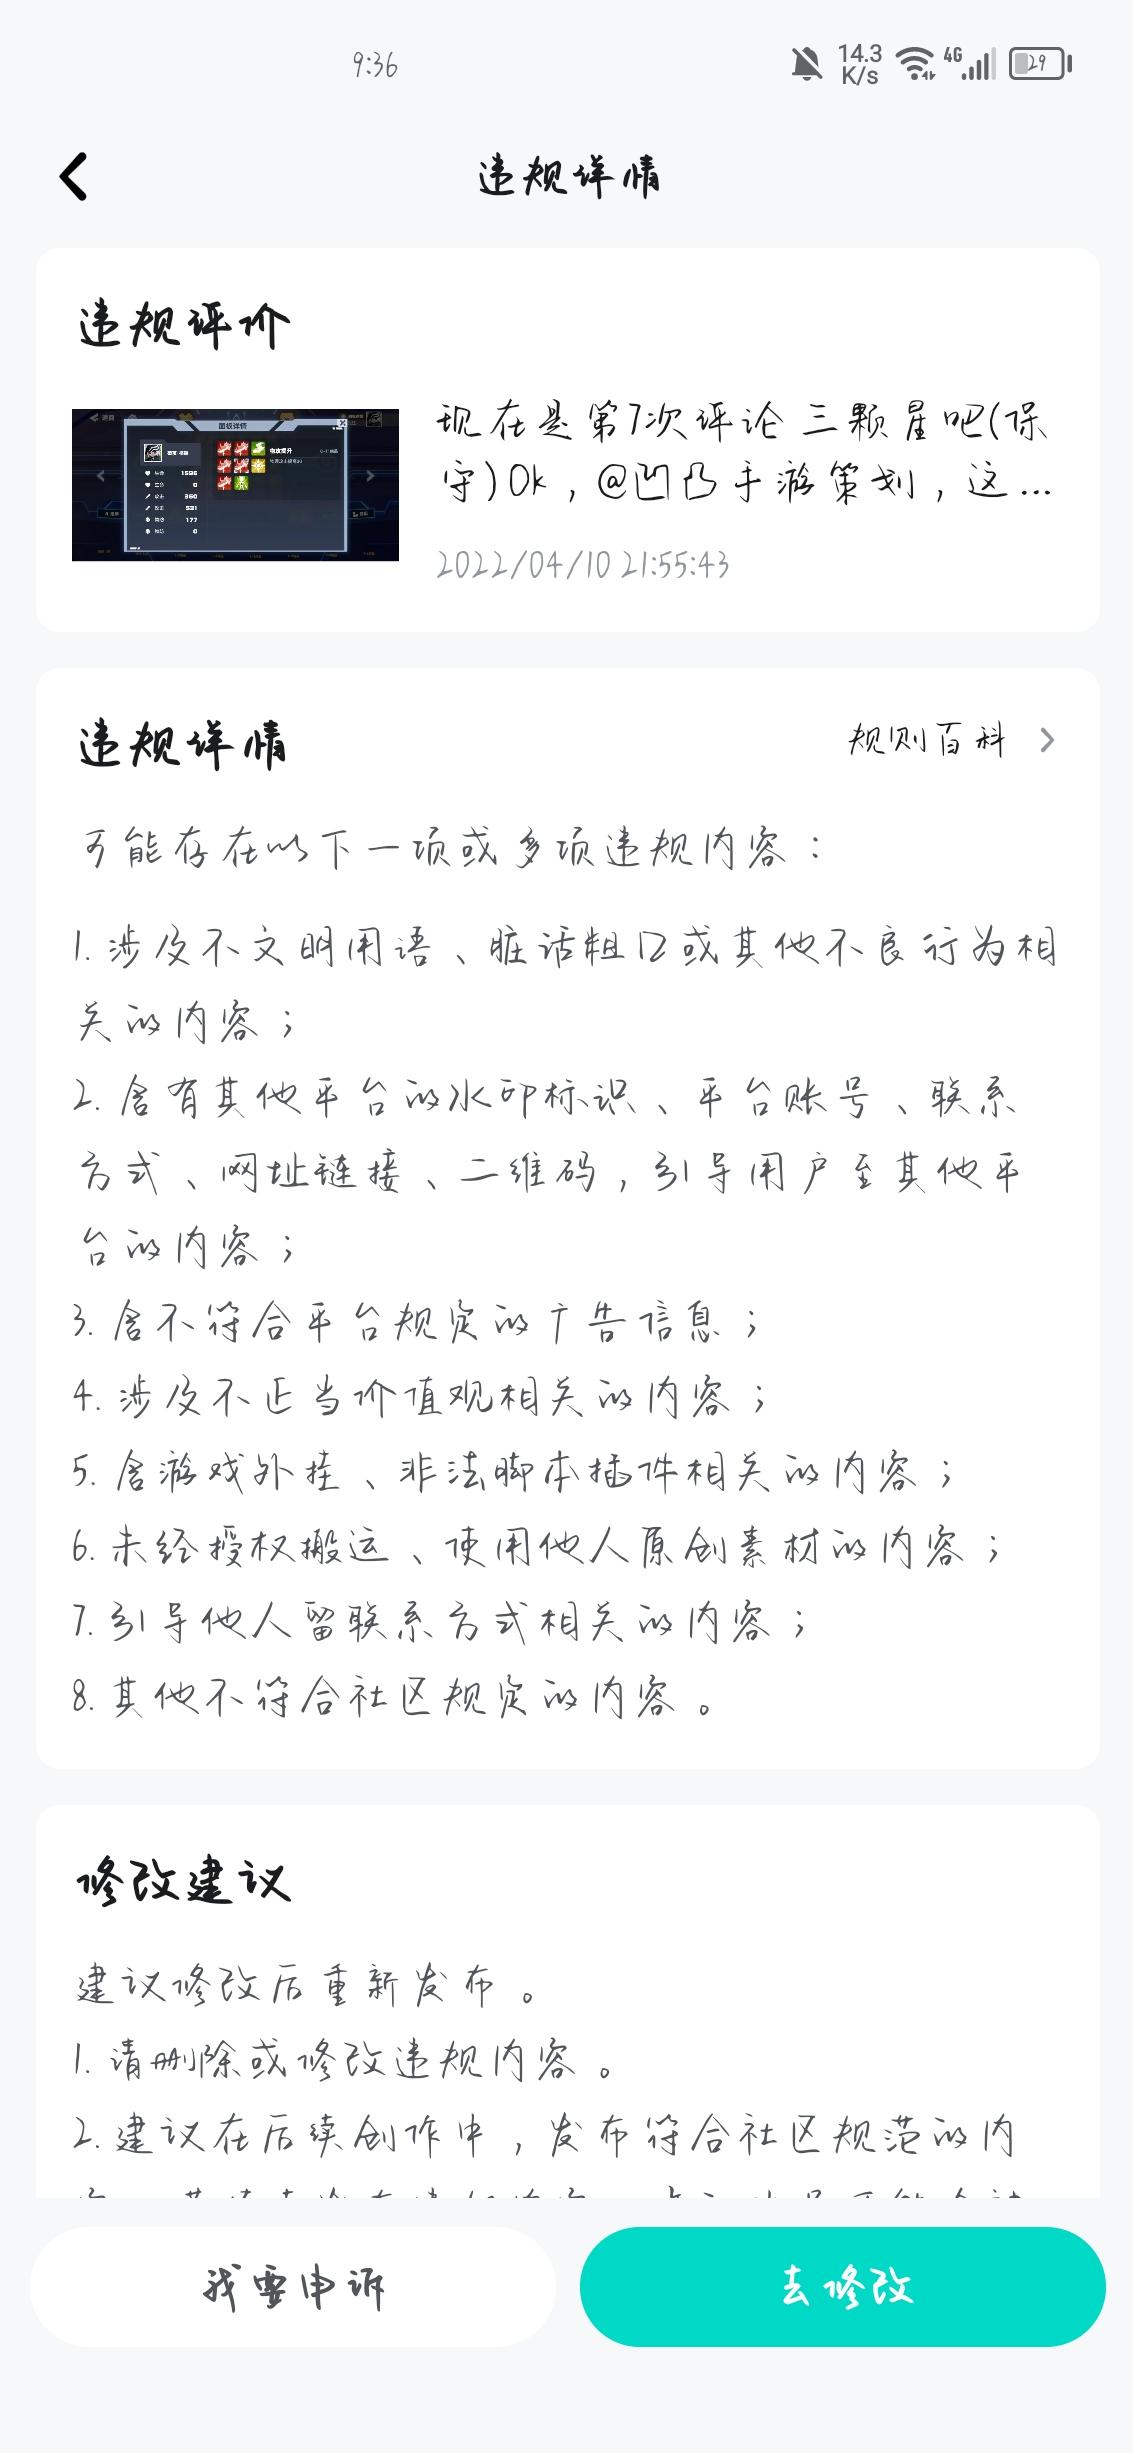 9:36
14.3 K/s
4G
29
违规详情
违规评价
面板详情
现在是第7次评论 三颗星吧(保
守)Ok，@凹凸手游策划，这...
2022/04/10 21:55:43
1586
0
360
531
177
0
违规详情
规则百科
可能存在以下一项或多项违规内容：
1. 涉及不文明用语、脏话粗口或其他不良行为相
关的内容；
2. 含有其他平台的水印标识、平台账号、联系
方式、网址链接、二维码，引导用户至其他平
台的内容；
3. 含不符合平台规定的广告信息；
4. 涉及不正当价值观相关的内容；
5. 含游戏外挂、非法脚本插件相关的内容；
6. 未经授权搬运、使用他人原创素材的内容；
7. 引导他人留联系方式相关的内容；
8. 其他不符合社区规定的内容。
修改建议
建议修改后重新发布。
1. 请删除或修改违规内容。
2. 建议在后续创作中，发布符合社区规范的内
我要申诉
去修改